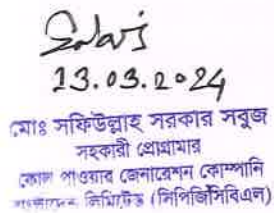 13.03.2024
মোঃ সফিউল্লাহ সরকার সবুজ
সহকারী প্রোগ্রামার
কোল পাওয়ার জেনারেশন কোম্পানি
লিমিটেড (সিপিজিসিবিএল)